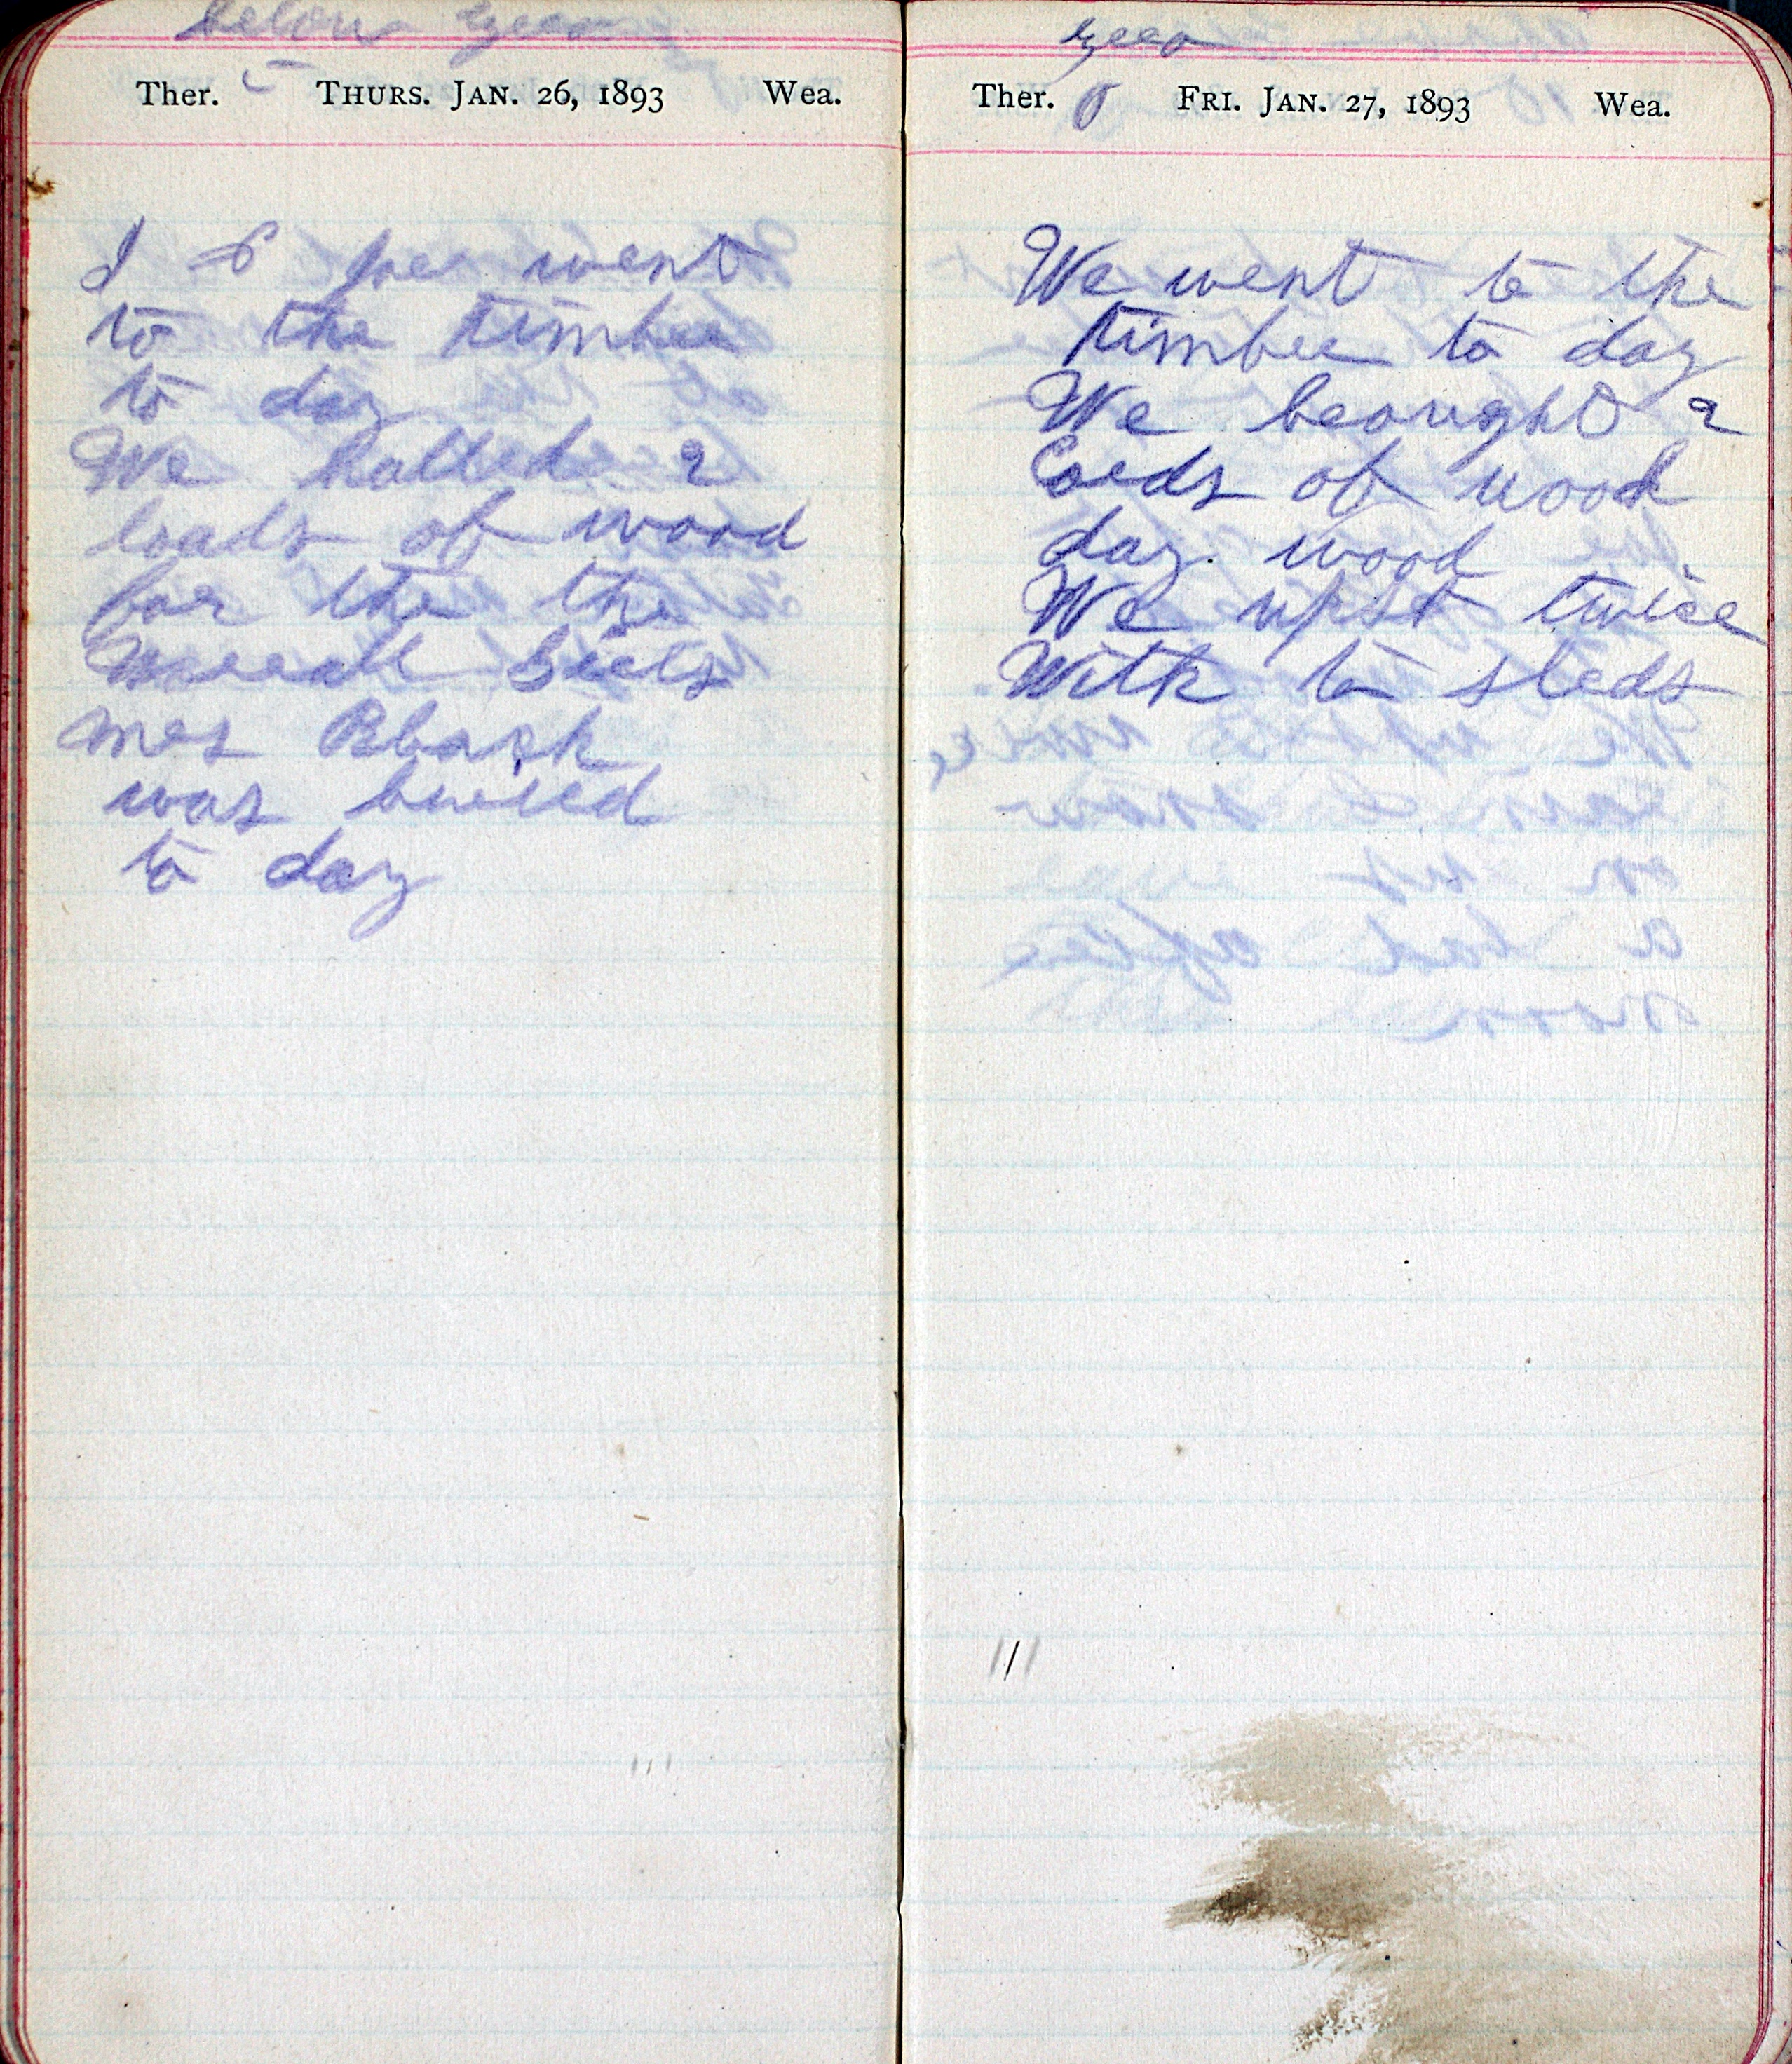 below zero
Ther. 5 THURS. JAN. 26, 1893 Wea.
I & Joe went
to the timber
to day
We halled 2
loads of wood
for the the
Girls
Mrs
was buried
to day
zero
Ther. 0 FRI. JAN. 27, 1893 Wea.
We went to the
timber to day
We brought 2
Cords of wood
day. wood
We upst twice
With to sleds